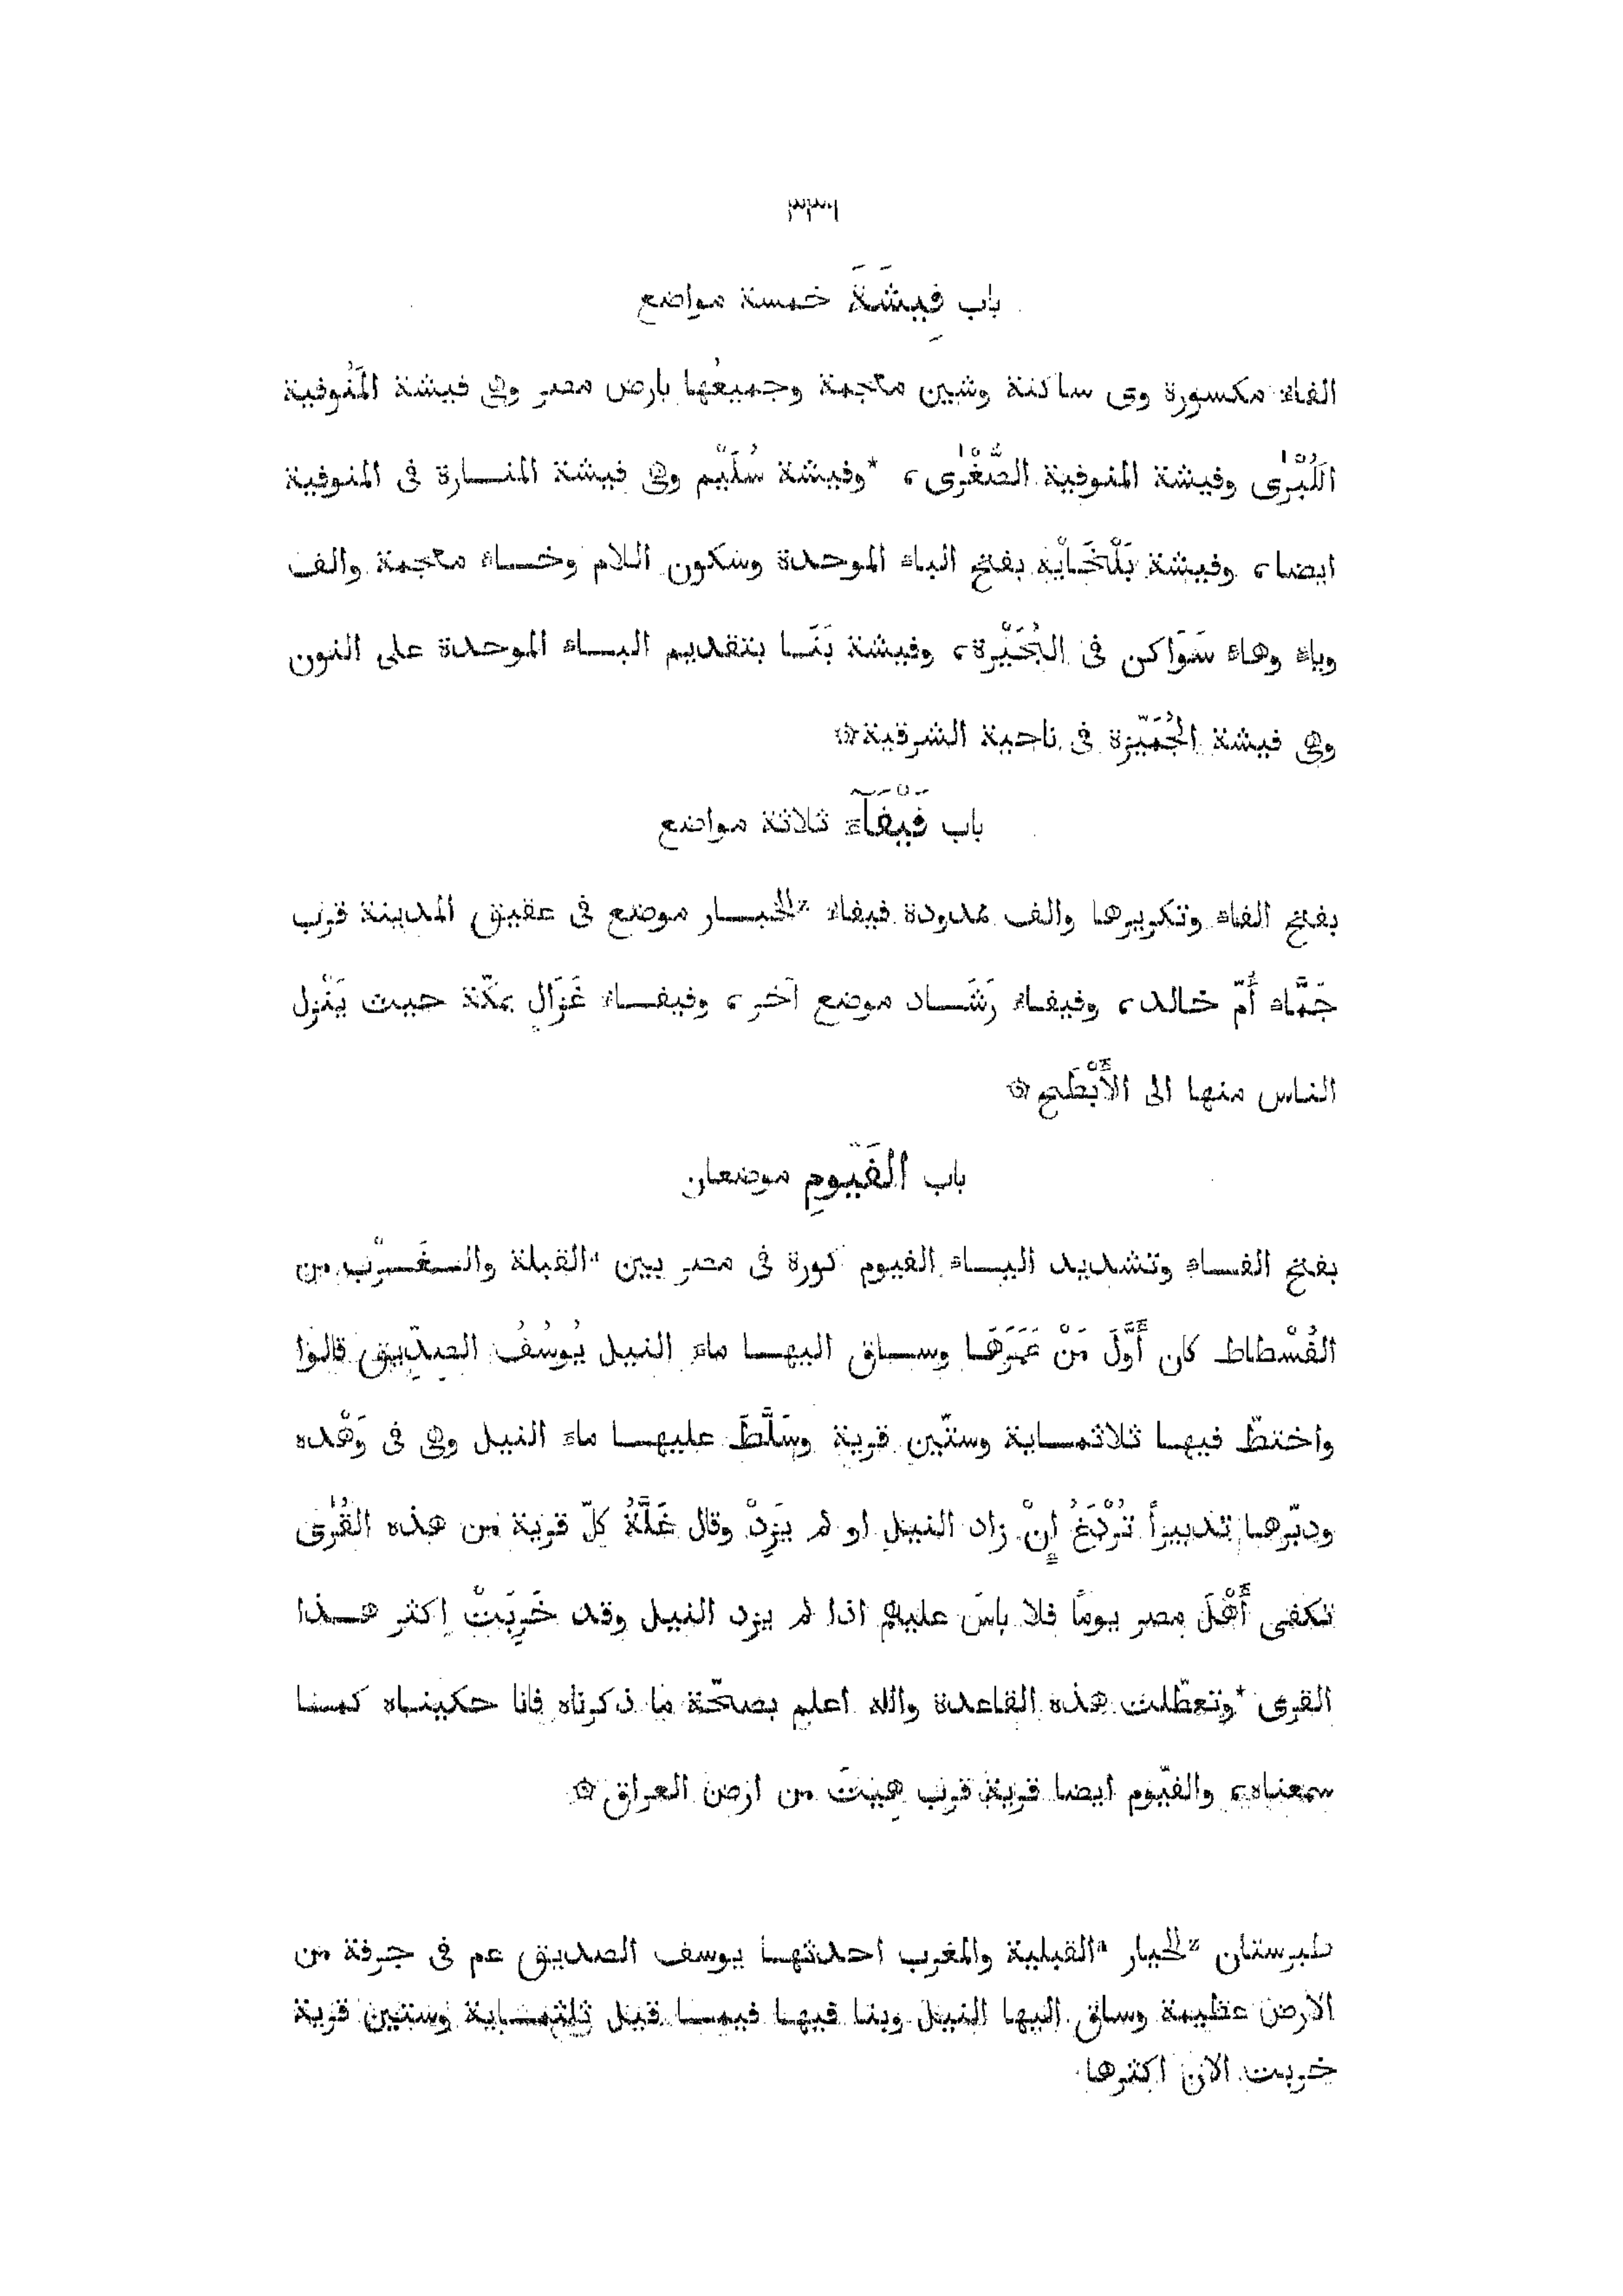 ٣٣٦
باب فِيشَةَ خمسة مواضع
الفاء مكسورة وى ساكنة وشين معجمة وجميعُها بارض مصر وهى فيشة المَنُوفية
الكُبْرٰى وفيشة المنوفية الصُّغْرٰى، *وفيشة سُلَيْم وهى فيشة المنارة فى المنوفية
ايضا، وفيشة بَلْخَايْه بفتح الباء الموحدة وسكون اللام وخاء معجمة والف
وياء وهاء سَوَاكن فى البُحَيْرة، وفيشة بَنَا بتقديم الباء الموحدة على النون
وهى فيشة الجُمَيّزة فى ناحية الشرقية ۞
باب فَيْفَآءَ ثلاثة مواضع
بفتح الفاء وتكريرها والف ممدودة فيفاء ᶻالخبار موضع فى عقيق المدينة قرب
جَمَّاء أُمّ خالد، وفيفاء رَشَاد موضع آخر، وفيفاء غَزَالٍ بمكّة حيث يَنْزل
الناس منها الى الأَبْطَح ۞
باب الفَيّومِ موضعان
بفتح الفاء وتشديد الياء الفيوم كورة فى مصر بين ᵃالقبلة والغَرْب من
الفُسْطاط كان أَوَّلَ مَنْ عَمَرَهَا وساق اليها ماء النيل يُوسُفُ الصِدّيق قالوا
واختطّ فيها ثلاثماية وستّين قرية وسَلَّطَ عليها ماء النيل وهى فى وَهْده
ودبّرها تدبيرًا تُرْدَغُ إِنْ زاد النيل او لم يَزِدْ وقال غَلَّةُ كلّ قرية من هذه القُرٰى
تكفى أَهْلَ مصر يومًا فلا باسَ عليهم اذا لم يزد النيل وقد خَرِبَتْ اكثر هذا
القرى *وتعطّلت هذه القاعدة والله اعلم بصحّة ما ذكرناه فانا حكيناه كما
سمعناه، والفيّوم ايضا قرية قرب هِيتَ من ارض العراق ۞
طبرستان ᶻالحيار ᵃالقبلية والمغرب احدثها يوسف الصديق عم فى جرفة من
الارض عظيمة وساق اليها النيل وبنا فيها فيما قيل ثلثماية وستين قرية
خربت الان اكثرها